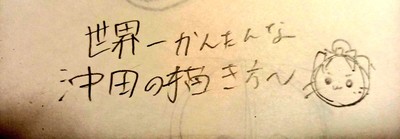 世界一かんたんな
沖田の描き方〜